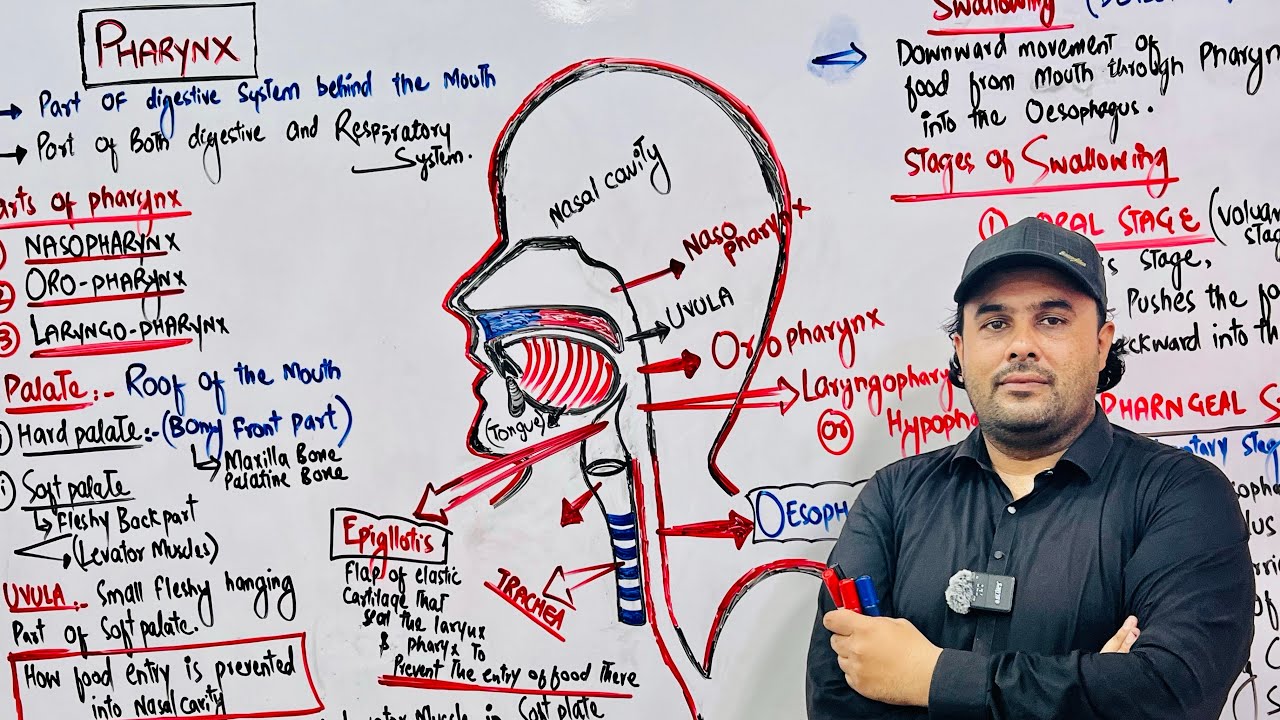 PHARYNX
→ Part OF digestive System behind the Mouth
→ Part of Both digestive and Respiratory
System.
arts of pharynx
NASOPHARYNX
② ORO-PHARYNX
③ LARYNGO-PHARYNX
Palate:- Roof of the Mouth
i) Hard palate:- (Bony front part)
Maxilla Bone
Palatine Bone
i) Soft palate
Fleshy Back part
(Levator Muscles)
UVULA:- Small fleshy hanging
Part of Soft palate.
How food entry is prevented
into Nasal cavity
Nasal cavity
Naso
pharynx
UVULA
Oropharynx
Laryngophary
OR Hypopha
(Tongue)
Epigllotis
Flap of elastic
Cartilage that
seal the larynx
& pharyx to
Prevent The entry of food there
TRACHEA
OESOPH
Levator Muscle in Soft plate
Swallowing
Downward movement of
food from Mouth through Pharyn
into the Oesophagus.
Stages of Swallowing
① ORAL STAGE (Volun
stag
is stage,
Pushes the fo
backward into th
PHARNGEAL S
entary stag
sopha
lus
rrie
of